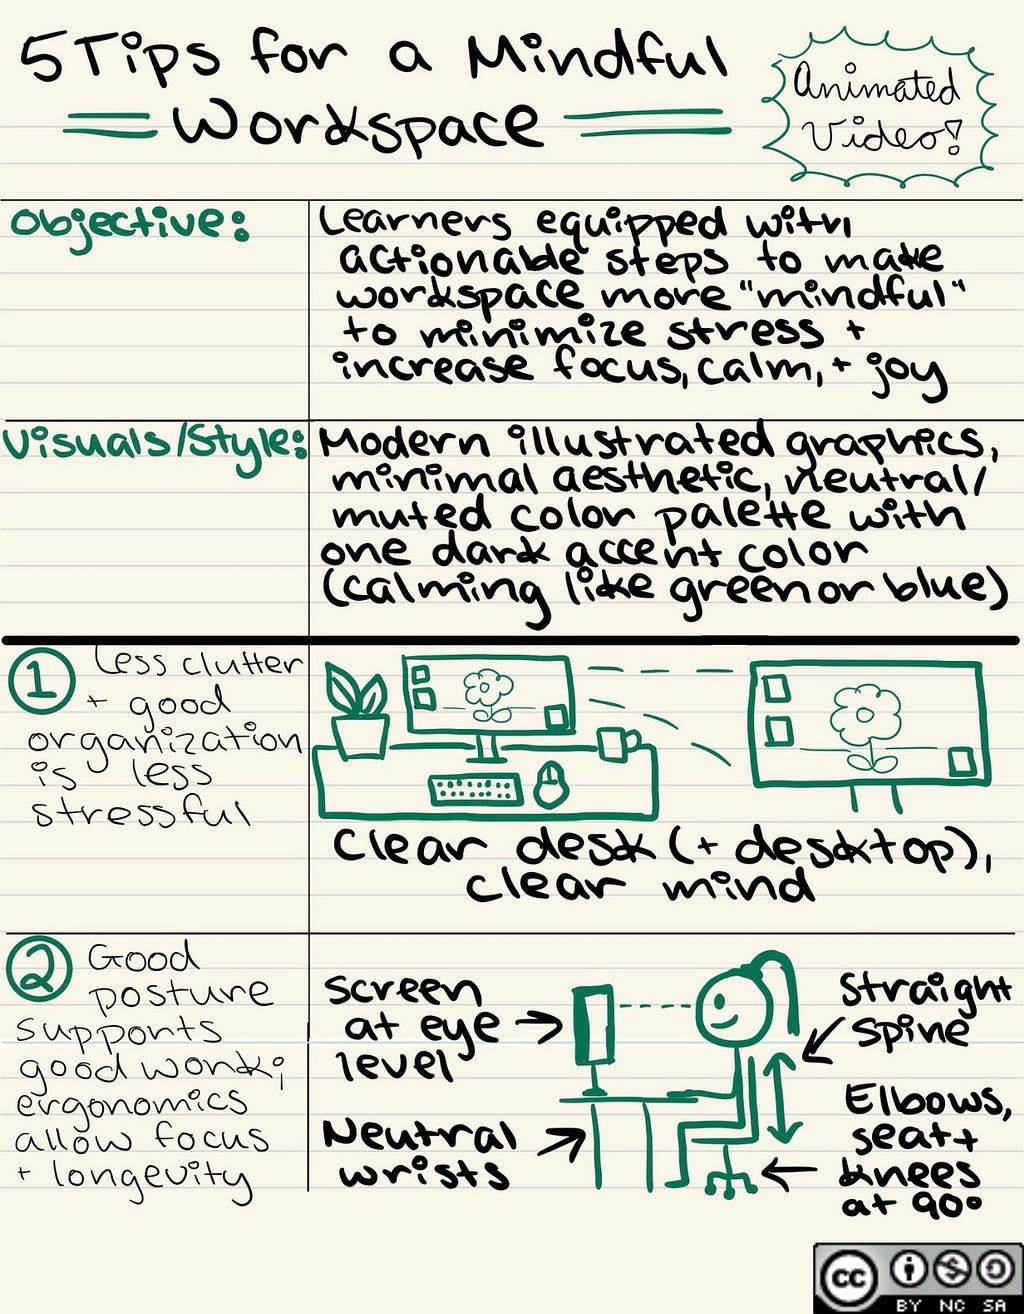 5 Tips for a Mindful
Workspace
Animated
Video!
Objective:
Learners equipped with
actionable steps to make
workspace more "mindful"
to minimize stress +
increase focus, calm, + joy
Visuals/Style:
Modern illustrated graphics,
minimal aesthetic, neutral/
muted color palette with
one dark accent color
(calming like green or blue)
1 Less clutter
+ good
organization
is less
stressful
Clear desk (+ desktop),
clear mind
2 Good
posture
supports
good work;
ergonomics
allow focus
+ longevity
Screen
at eye
level
Neutral
wrists
Straight
spine
Elbows,
seat +
knees
at 90°
cc
BY NC SA